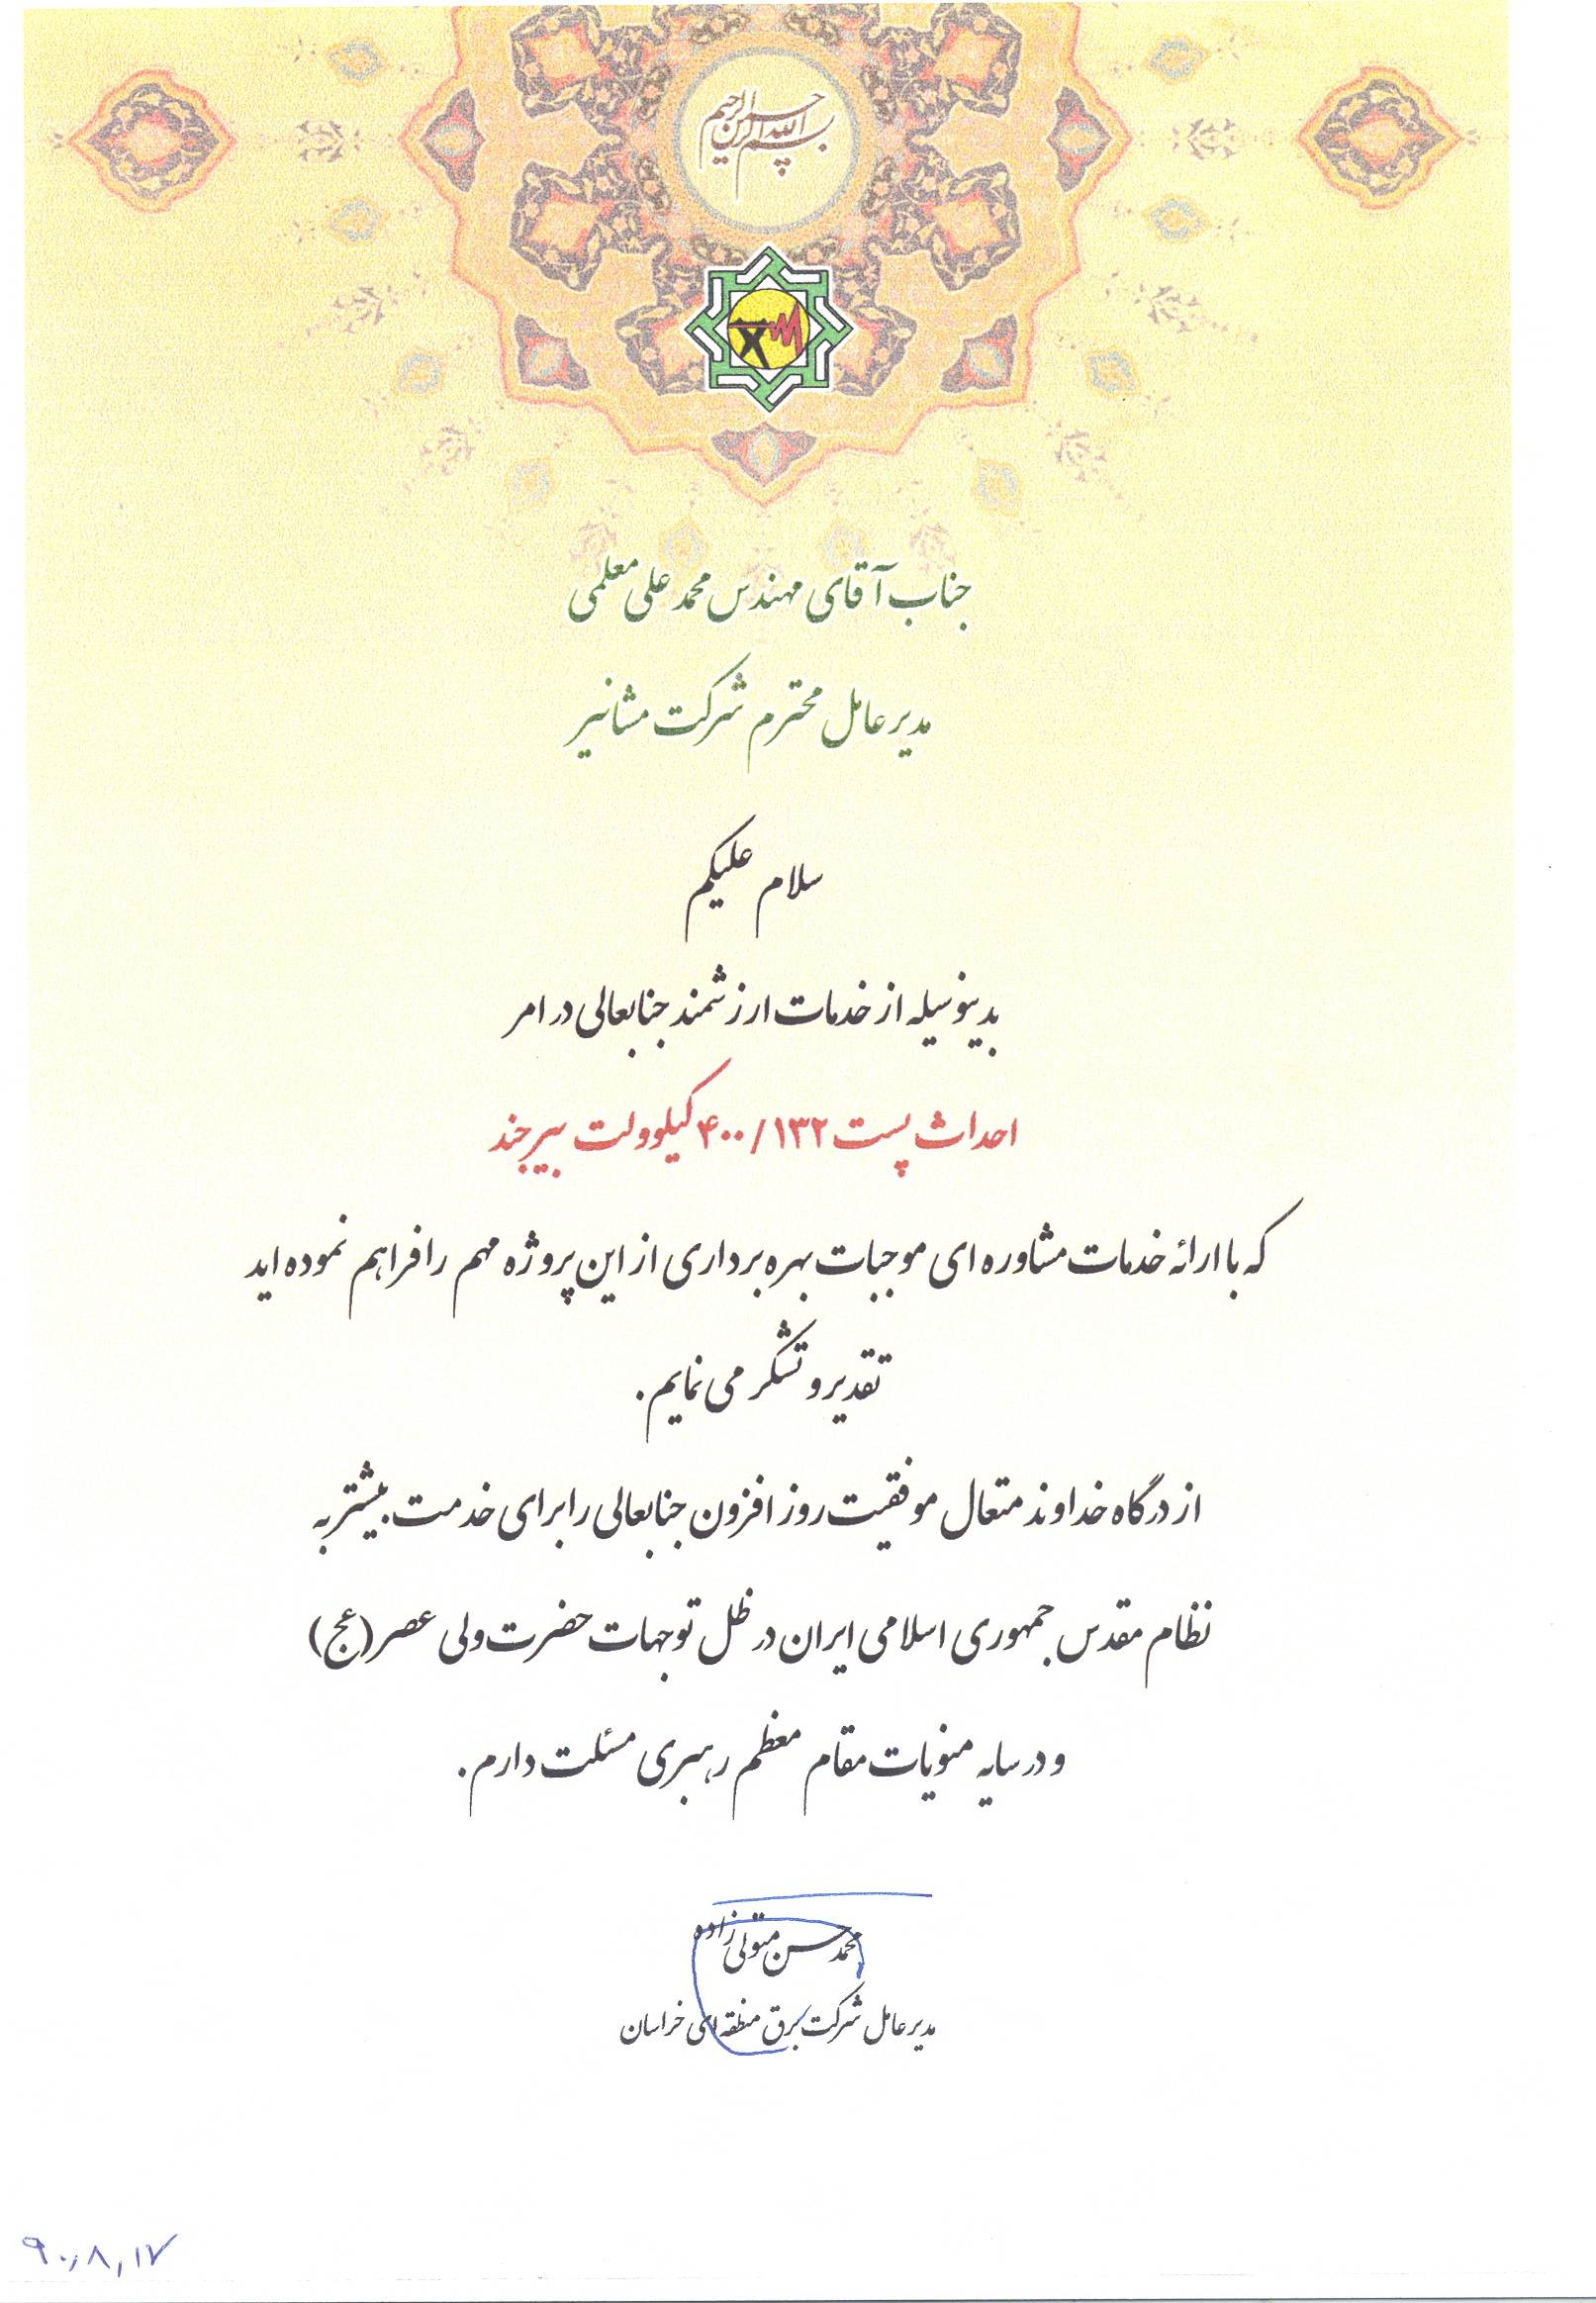 بسم الله الرحمن الرحیم
جناب آقای مهندس محمد علی معلمی
مدیر عامل محترم شرکت مشانیر
سلام علیکم
بدینوسیله از خدمات ارزشمند جنابعالی در امر
احداث پست ۴۰۰/۱۳۲ کیلوولت بیرجند
که با ارائه خدمات مشاوره ای موجبات بهره برداری از این پروژه مهم را فراهم نموده اید
تقدیر و تشکر می نمایم.
از درگاه خداوند متعال موفقیت روز افزون جنابعالی را برای خدمت بیشتر به
نظام مقدس جمهوری اسلامی ایران در ظل توجهات حضرت ولی عصر (عج)
و در سایه منویات مقام معظم رهبری مسئلت دارم.
محمد حسن متولی زاده
مدیر عامل شرکت برق منطقه ای خراسان
۹۰٫۸٫۱۷